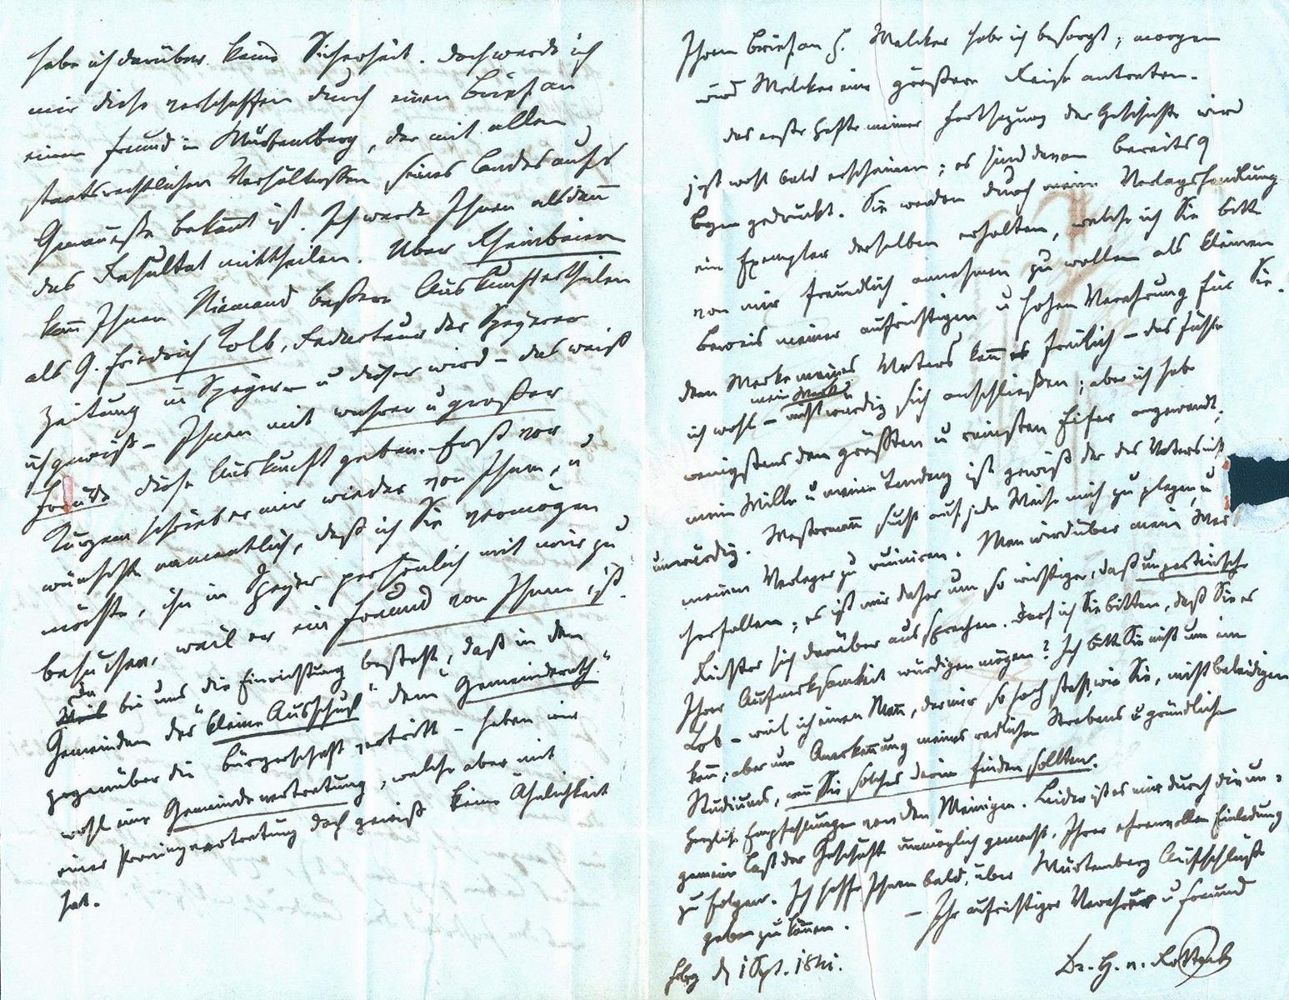 habe ich darüber keine Sicherheit. Doch werde ich
mir diese verschaffen durch einen Brief an
einen Freund in Würtemberg, der mit allen
staatsrechtlichen Verhältnissen seines Landes aufs
Genaueste bekannt ist. Ich werde Ihnen alsdann
das Resultat mittheilen. Über Rheinbaiern
kann Ihnen Niemand bessere Auskunft ertheilen
als H. Friedrich Kolb, Redacteur der Speyerer
Zeitung in Speyer u dieser wird – das weiß
ich gewiß – Ihnen mit wahrer u großer
Freude diese Auskunft geben. Erst vor
Kurzem schrieb er mir wieder von Ihnen, u
wünschte namentlich, daß ich Sie vermögen
möchte, ihn in Speyer persönlich mit mir zu
besuchen, weil er ein Freund von Ihnen ist.
Da bei uns die Einrichtung besteht, daß in den
Gemeinden der "kleine Ausschuß" dem "Gemeinderath"
gegenüber die Bürgerschaft vertritt – haben wir
wohl eine Gemeindevertretung, welche aber mit
einer Provinzvertretung doch gewiß keine Ähnlichkeit
hat.
Ihren Brief an H. Welcker habe ich besorgt; morgen
wird Welcker eine größere Reise antreten.
Das erste Heft meiner Fortsetzung der Geschichte wird
jetzt wohl bald erscheinen; es sind davon bereits 9
Bogen gedruckt. Sie werden durch meine Verlagshandlung
ein Exemplar derselben erhalten, welche ich Sie bitte
von mir freundlich annehmen zu wollen als kleinen
Beweis meiner aufrichtigen u hohen Verehrung für Sie.
Dem Werke meines Vaters kann es freilich – das fühle
mein Werk
ich wohl – nicht würdig sich anschließen; aber ich habe
wenigstens den größten u reinsten Eifer angewandt,
mein Wille u meine Tendenz ist gewiß der des Vaters nicht
unwürdig. Westermann sucht auf jede Weise mich zu plagen, u
meinen Verleger zu ruiniren. Man wird über mein Werk
herfallen; es ist mir daher um so wichtiger, daß unparteiische
Richter sich darüber aussprechen. Darf ich Sie bitten, daß Sie es
Ihrer Aufmerksamkeit würdigen mögen? Ich bitte Sie nicht um ein
Lob – weil ich einen Mann, der mir so hoch steht, wie Sie, nicht beleidigen
kann; aber um Anerkennung meines redlichen Strebens u gründlichen
Studiums, wenn Sie solches darin finden sollten.
Herzliche Empfehlungen von den Meinigen. Leider ist es mir durch die un-
gemeine Last der Geschäfte unmöglich gemacht, Ihrer ehrenvollen Einladung
zu folgen. Ich hoffe Ihnen bald über Würtemberg Aufschlüsse
geben zu können. – Ihr aufrichtiger Verehrer u Freund
Fbrg d 1 Spt. 1841.
Dr. H. v. Rotteck